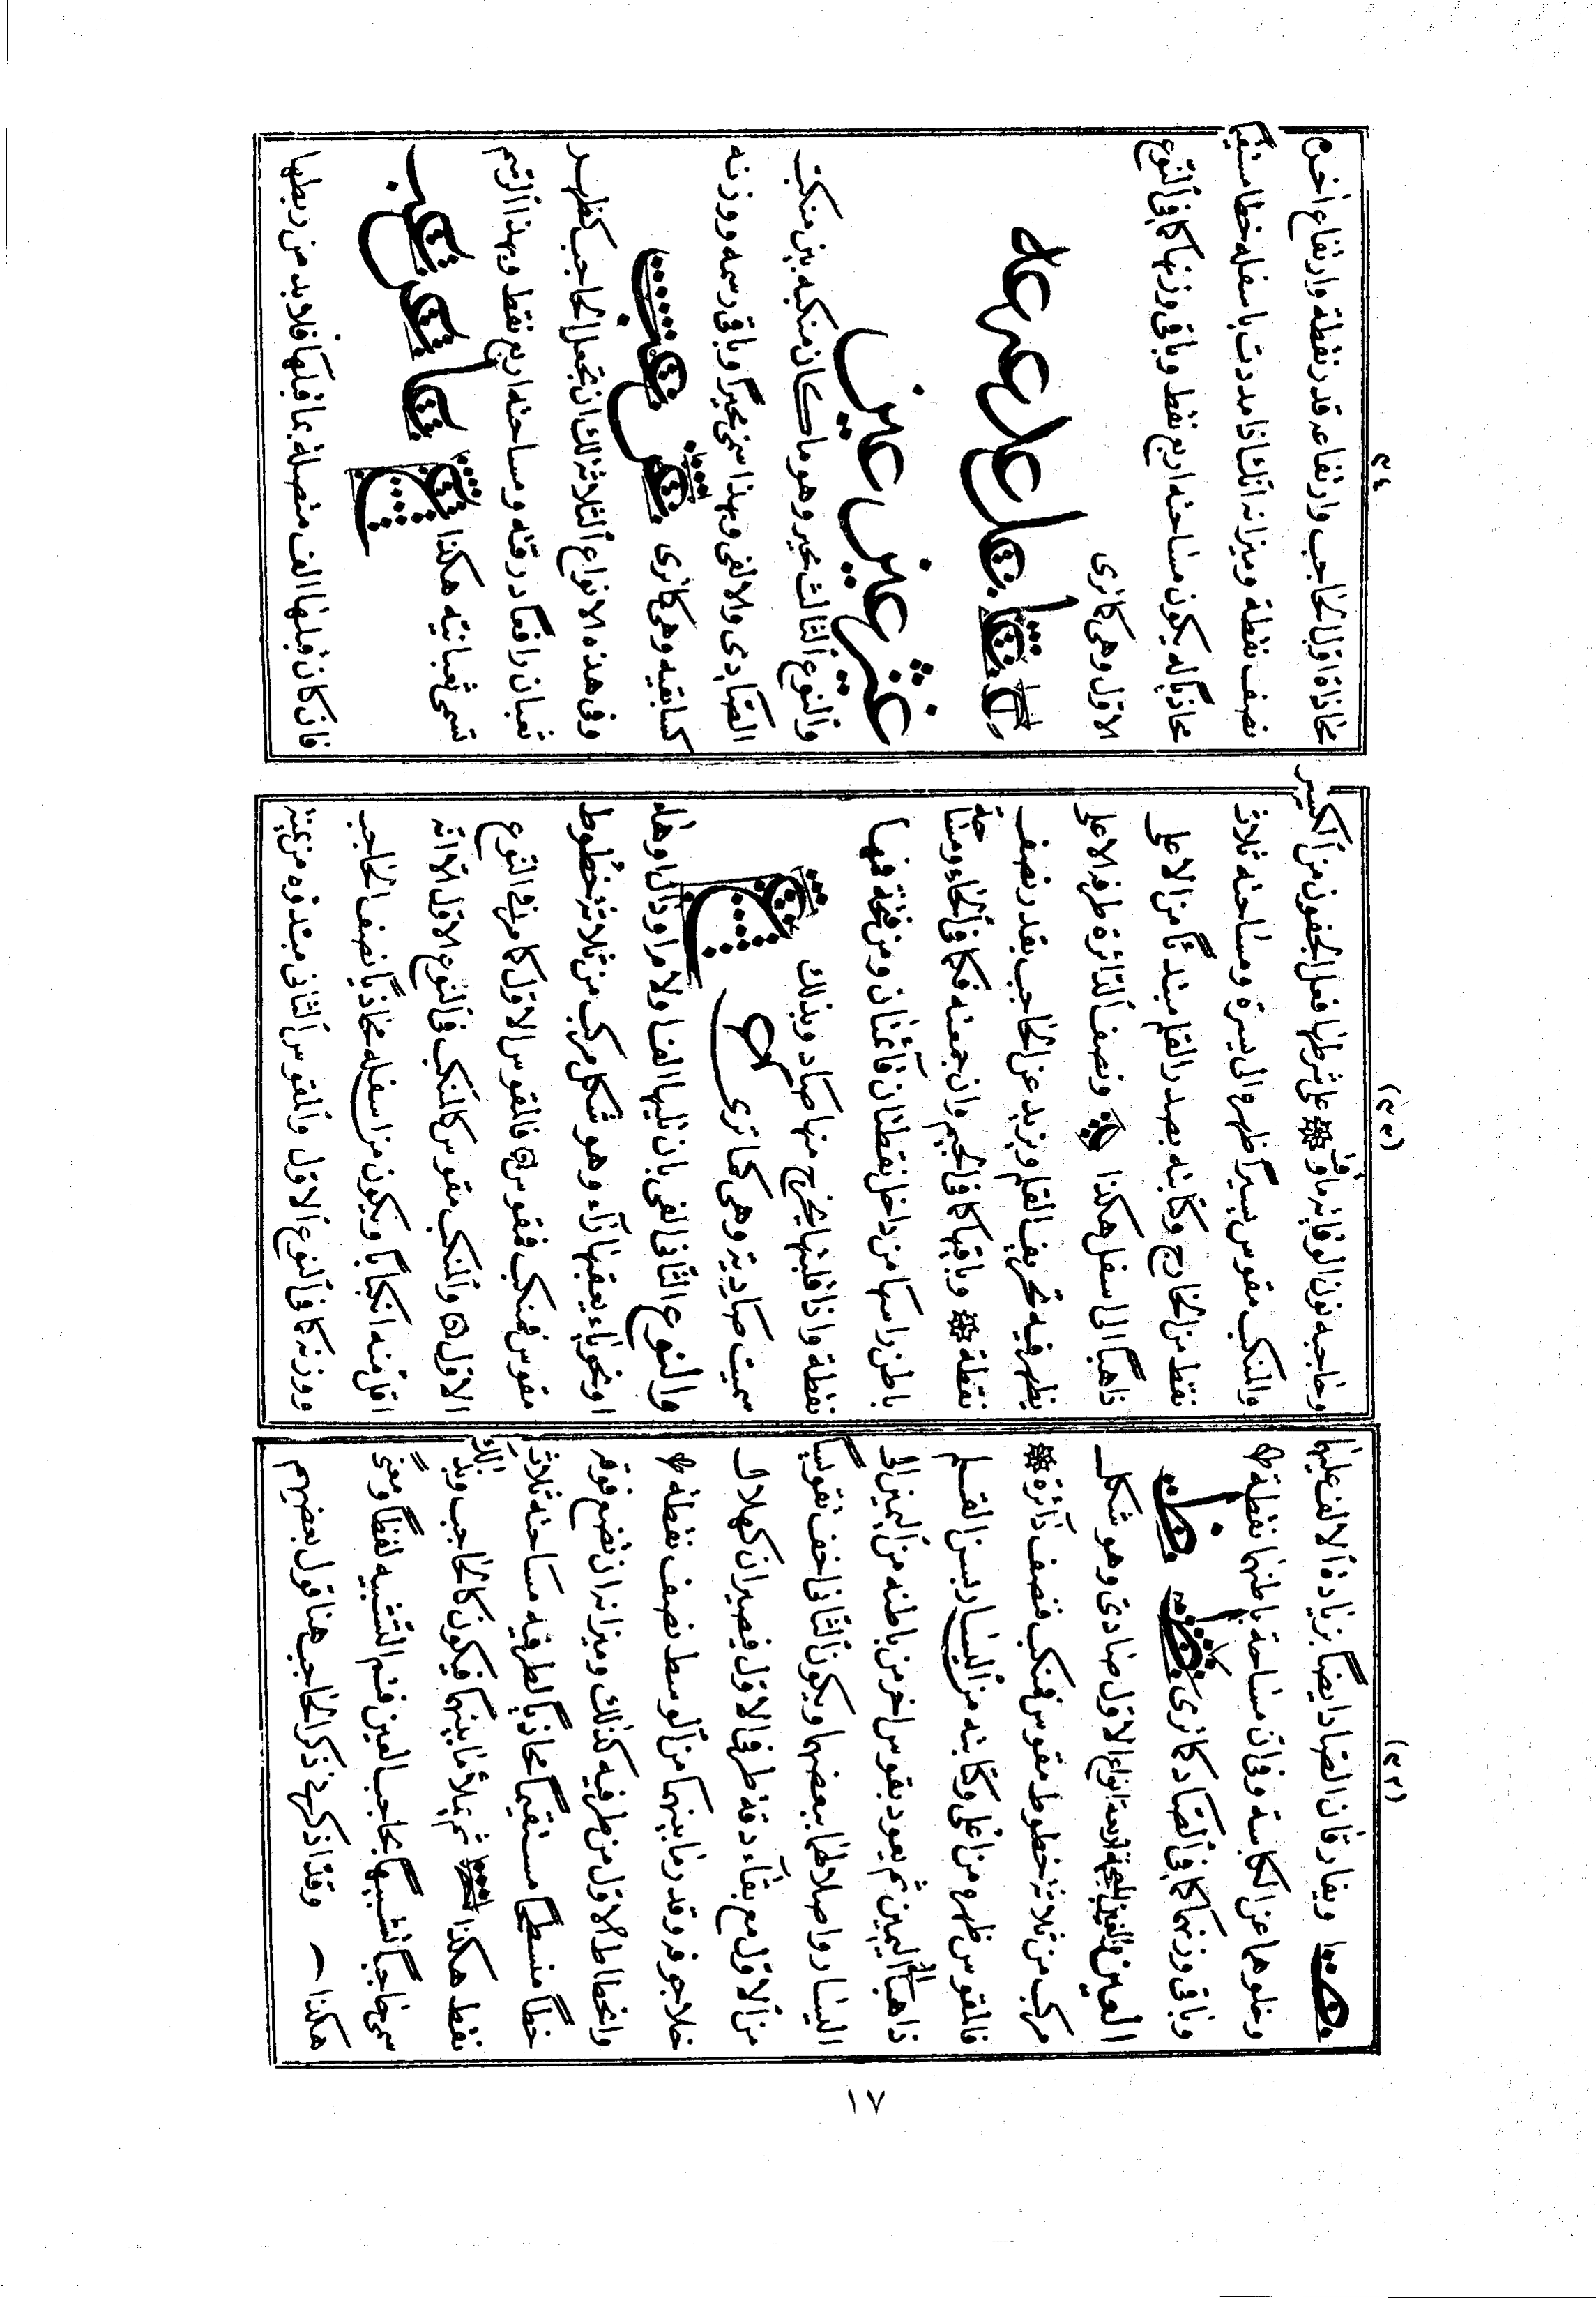 (٣٢)
ويفارقان الصاد ايضاً بزيادة الالف عليها
وخلوهما عن الكاسة وفى ان مساحة باطنهما نقطة
وباقى وزنهما كما فى الصاد كما ترى
العين والغين المعجمة اربعة انواع الاول صادى وهو شكل
مركب من ثلاثة خطوط مقوس فمنكب فنصف دآئرة
فالمقوس ظهره من اعلى وكتابته من اليسار بسن القلم
ذاهباً الى اليمين ثم يعود بقوس اخر من باطنه من اليمين الى
اليسار واصلاً لهما ببعضهما ويكون الثانى اخف تقويسا
من الاول مع بقآء دقة طرفى الاول فيصيران كهلال
خلا جوفه وقدر ما بينهما من الوسط نصف نقطة
وانحطاط الاول من طرفيه كذلك وميزانه ان تضع فوقه
خطاً منسطحاً مستقيماً محاذياً لطرفيه مساحته ثلاث
نقط هكذا ثم تملأ ما بينهما فيكون كالحاجب وبذلك
سمى حاجباً تشبيهاً بحاجب العين فتم التشبيه لفظاً ومعنىً
هكذا وقد اذكرنى ذكر الحاجب هنا قول بعضهم
(٣٣)
وحاجبه نون الوقاية ما وقت على شرطها فعل الجفون من الكسر
والمنكب مقوس يسيراً ظهره الى يسرة ومساحته ثلاث
نقط من الخارج وكتابته بصدر القلم مبتدئاً من الاعلى
ذاهباً الى اسفل هكذا ونصف الدآئرة طرفه الاعلى
يظهر فيه تحريف القلم ويزيد عن الحاجب بقدر نصف
نقطة وباقيها كما فى الجيم وان جمعته فكما فى الحاء ومساحة
باطن راسها من داخل نقطتان قآئمتان ومن فتحة فمها
نقطة واذا قلبتها يخرج منها صاد وبذلك
سميت صادية وهى كما ترى
والنوع الثانى الفى بان تليها الفا او لاما او دالا او هاء
او نحو باء يعقبها رآء وهو شكل مركب من ثلاثة خطوط
مقوس فمنكب فمقوس فالمقوس الاول كما مر فى النوع
الاول والمنكب مقوس كالمنكب فى النوع الاول الا انه
اقل منه انكباباً ويكون من اسفله محاذياً نصف الحاجب
ووزنه كما فى النوع الاول والمقوس الثانى مبتدؤه من يمينة
٣٤
محاذاة اول الحاجب وارتفاعه قدر نقطة وارتفاع اخره
نصف نقطة وميزانه انك اذا مددت باسفله خطا مستقيماً
محاذياً له يكون مساحته اربع نقط وباقى وزنها كما فى النوع
الاول وهى كما ترى
والنوع الثالث محير وهو ما كان منكبه بين منكبى
الصادى والالفى وبهذا سمى محيراً وباقى رسمه ووزنه
كسابقيه وهى كما ترى
وفى هذه الانواع الثلاثة لك ان تجعل الحاجب كظهر
ثعبان رافعاً درقته ومساحته اربع نقط وبهذا الرسم
تسمى ثعبانية هكذا
فان كان قبلها الف متصلة بما قبلها فلا بد من ربطها
١٧